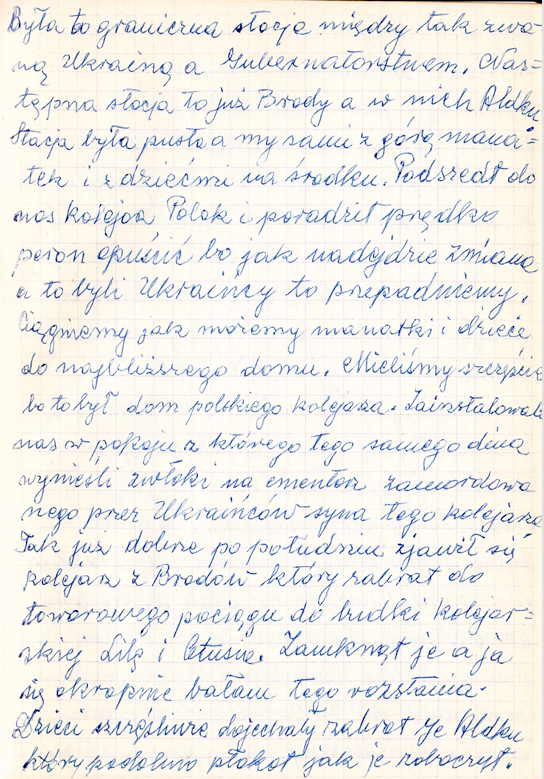 Była to graniczna stacja między tak zwa-
ną Ukrainą a Gubernatorstwem. Nas-
tępna stacja to już Brody a w nich Aldku
Stacja była pusta a my sami z górą mana-
tek i z dziećmi na środku. Podszedł do
nas kolejoz Polak i poradził prędko
peron opuścić bo jak nadejdzie zmiana
a to byli Ukraińcy to przepadniemy.
Ciągniemy jak możemy manatki i dzieci
do najbliższego domu. Mieliśmy szczęście
bo to był dom polskiego kolejarza. Zainstalowali
nas w pokoju z którego tego samego dnia
wynieśli zwłoki na cmentarz zamordowa
nego przez Ukraińców syna tego kolejarza
Tak już dobrze po południu zjawił się
kolejarz z Brodów który zabrał do
towarowego pociągu do budki kolejar-
skiej Lilę i Etusia. Zamknął je a ja
się okropnie bałam tego rozstania.
Dzieci szczęśliwie dojechały zabrał je Aldku
który podobno płakał jak je zobaczył.